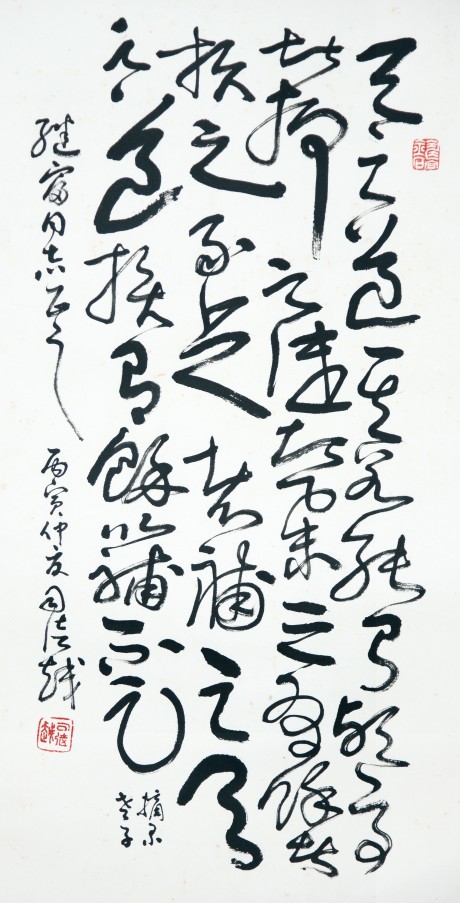 天之道其張弓歟高
者抑之者舉之有餘者
損之不足者補之天
之道損有餘以補不足
摘录
老子
继富同志正之
丙寅仲夏司徒越